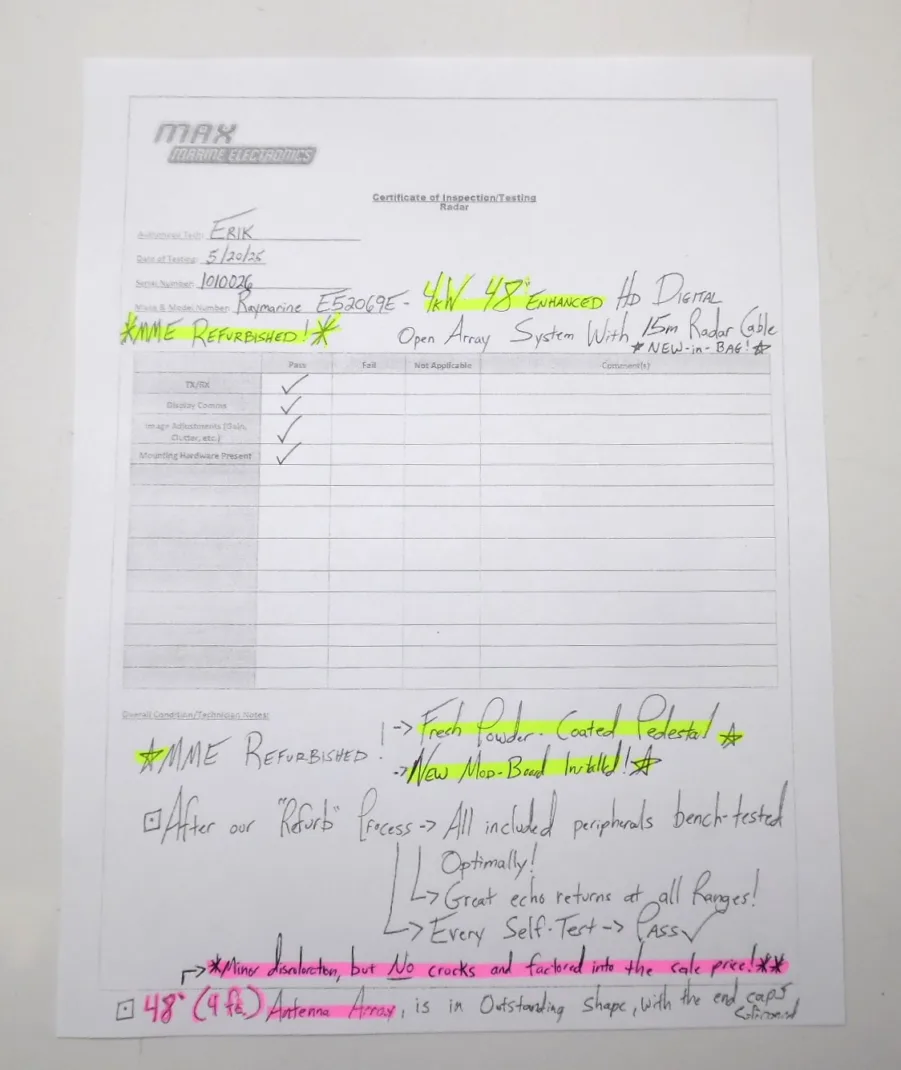 MAX
MARINE ELECTRONICS
Certificate of Inspection/Testing
Radar
Authorized Tech: ERIK
Date of Testing: 5/20/25
Serial Number: 1010026
Make & Model Number: Raymarine E52069E - 4kW 48" ENHANCED HD DIGITAL
*MME REFURBISHED!* OPEN ARRAY SYSTEM WITH 15m Radar Cable
*NEW-IN-BAG!*
Pass Fail Not Applicable Comment(s)
TX/RX ✓
Display Comms ✓
Image Adjustments (Gain,
Clutter, etc.) ✓
Mounting Hardware Present ✓
Overall Condition/Technician Notes:
*MME REFURBISHED! -> Fresh Powder-Coated Pedestal *
-> New Mod-Board Installed! *
After our "Refurb" Process -> All included peripherals bench-tested
Optimally!
-> Great echo returns at all Ranges!
-> Every Self-Test -> PASS ✓
-> *Minor discoloration, but No cracks and factored into the sale price!**
48" (4 ft.) Antenna Array, is in Outstanding shape, with the end caps